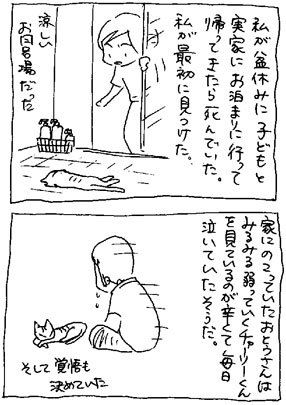 私が盆休みに子どもと
実家にお泊まりに行って
帰ってきたら死んでいた。
私が最初に見つけた。
涼しい
お風呂場だった
家にのこっていたおとうさんは
みるみる弱っていくチャーリーくん
を見ているのが辛くて毎日
泣いていたそうだ。
そして覚悟も
決めていた